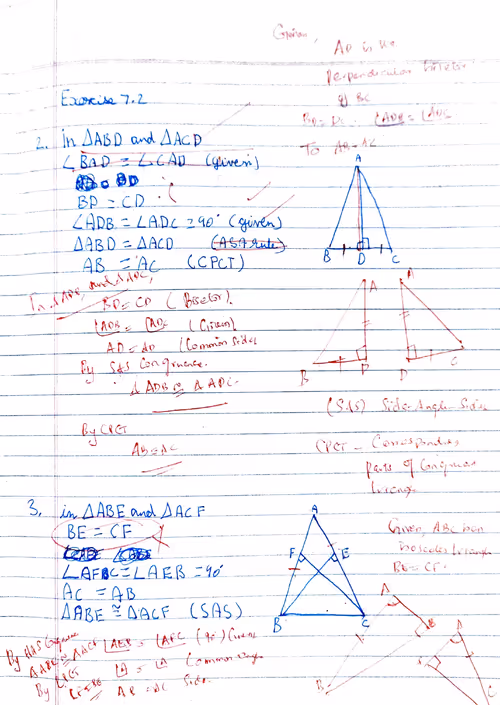 Given,
AD is the
Perpendicular bisector
of BC
BD = DC. ∠ADB = ∠ADC
To AB = AC
Exercise 7.2
2. In ΔABD and ΔACD
∠BAD = ∠CAD (given)
BD = CD
∠ADB = ∠ADC = 90° (given)
ΔABD = ΔACD (ASA rule)
AB = AC (CPCT)
A
B D C
In ΔADB, and ΔADC,
BD = CD (Bisector).
∠ADB = ∠ADC (Given)
AD = AD (Common side)
By SAS Congruence.
ΔADB ≅ ΔADC.
A A
B D D C
(SAS) Side-Angle-Side
By CPCT
AB = AC
CPCT - Corresponding
parts of Congruent
triangle
3. in ΔABE and ΔACF
BE = CF
∠AFC = ∠AEB = 90°
AC = AB
ΔABE ≅ ΔACF (SAS)
A
F E
B C
Given, ABC
Isosceles triangle
BE = CF.
By Congruence
ΔABE ≅ ΔACF
By CPCT
∠AEB = ∠AFC (90°) Given
∠A = ∠A Common angle
AB = AC Side
A
E
B
A
C